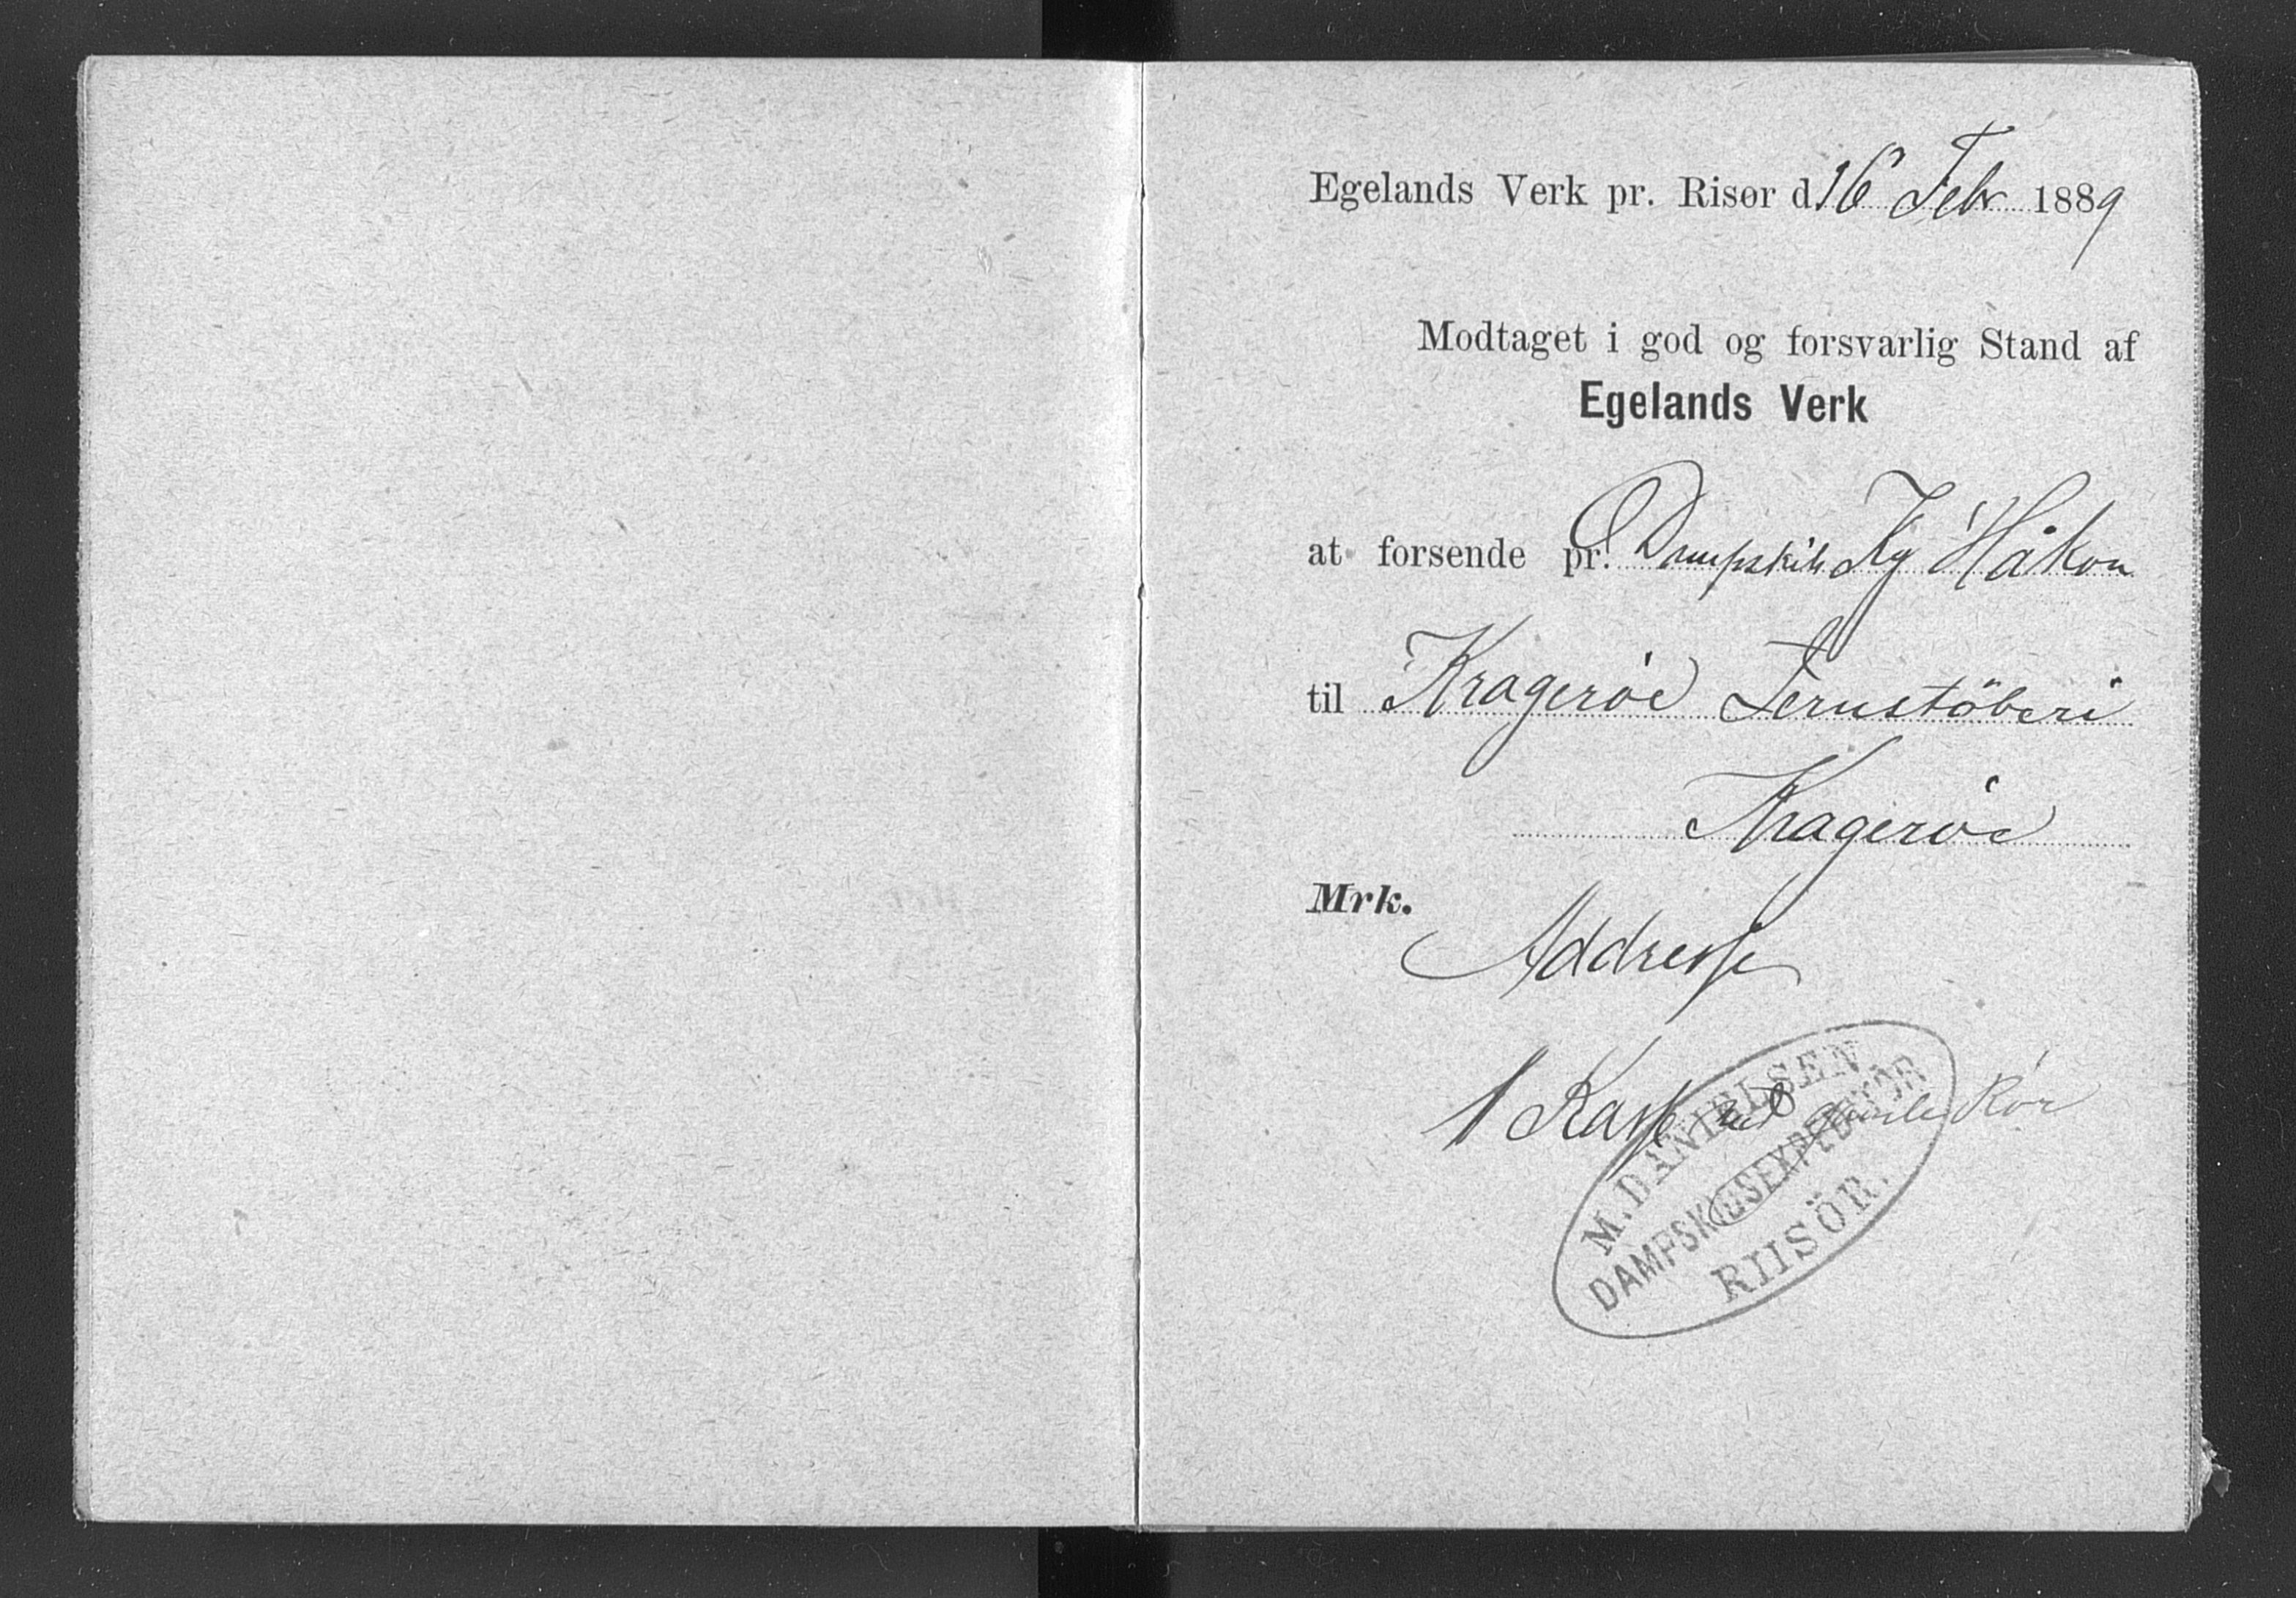 Egelands Verk pr. Risør d. 16 Febr 1889
Modtaget i god og forsvarlig Stand af
Egelands Verk
at forsende pr. Dampskib Kg Håkon
til Kragerøe Jernstöberi
Kragerøe
Mrk.
Addresse
1 Kasse Rør
M. DANIELSEN
DAMPSKIBSEXPEDITÖR
RIISÖR.